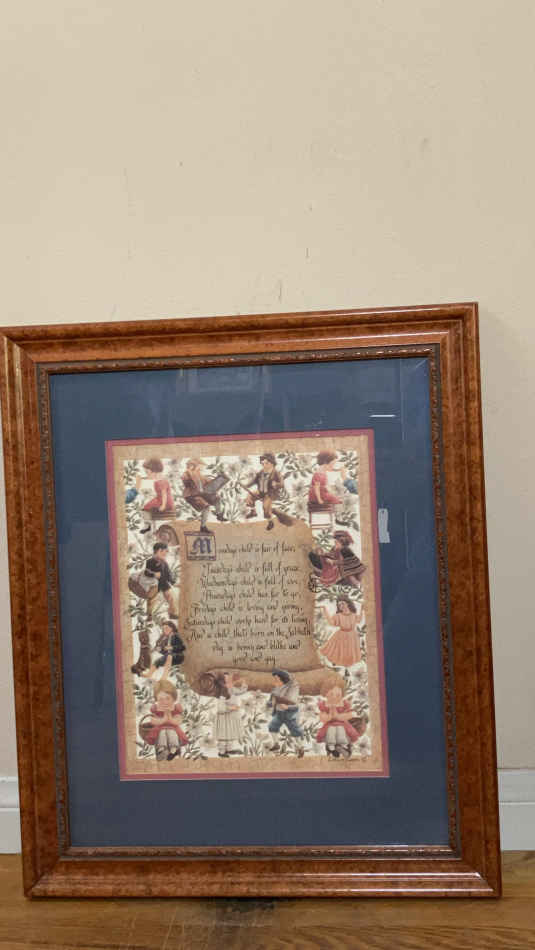 Monday's child is fair of face,
Tuesday's child is full of grace,
Wednesday's child is full of woe,
Thursday's child has far to go,
Friday's child is loving and giving,
Saturday's child works hard for its living,
And a child that's born on the Sabbath
day, is bonny and blithe and
good and gay.